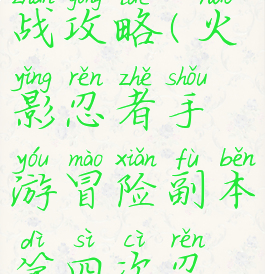 zhàn gōng lüè huǒ
战攻略(火
yǐng rěn zhě shǒu
影忍者手
yóu mào xiǎn fù běn
游冒险副本
dì sì cì rěn
第四次忍